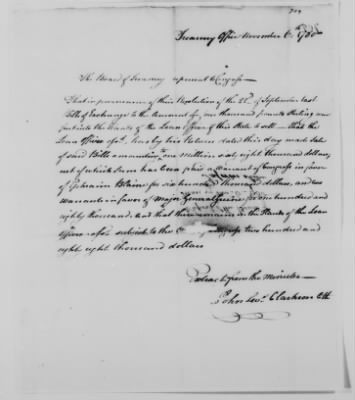 Treasury Office November 6th 1780
The Board of Treasury represent to Congress
That in pursuance of their Resolution of the 21st of September last
Bills of Exchange to the amount of one thousand pounds Sterling are
put into the hands of the Loan Officer of this State to sell — that the
Loan Officer hereby his Return dated this day made Sale
of said Bills amounting to one million sixty eight thousand dollars,
out of which Sum has been paid a Warrant of Congress in favor
of Ephraim Blaine for six hundred thousand dollars, and
warrants in favor of Major General Greene for one hundred and
eighty thousand. And that there remains in the Hands of the Loan
Officer subject to the Congress two hundred and
eighty eight thousand dollars
Extract from the Minutes —
John Clarkson